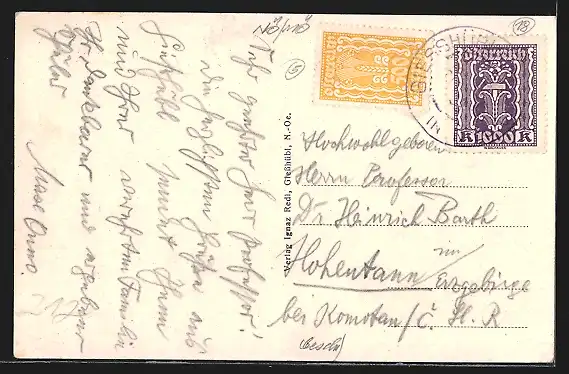 NÖ/MÖ
18
5
Österreich
500
GIESSHÜBL
Österreich
K 1000 K
Sehr geehrter Herr Professor!
Die herzlichsten Grüße aus
Gießhübl sendet Ihnen
und Ihrer verehrten Familie
Ihr dankbarer und ergebener
Schüler
Verlag Ignaz Redl, Gießhübl, N.-Oe.
Hochwohlgeboren
Herrn Professor
Dr Heinrich Barth
Hohentann im Erzgebirge
bei Komotau / Č. Sl. R